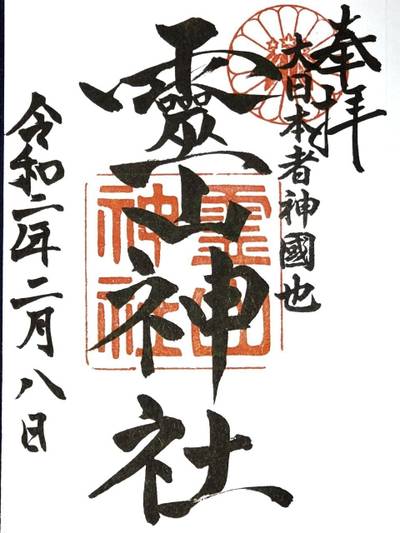 奉拝
大日本者神國也
靈山神社
霊山神社
令和二年二月八日